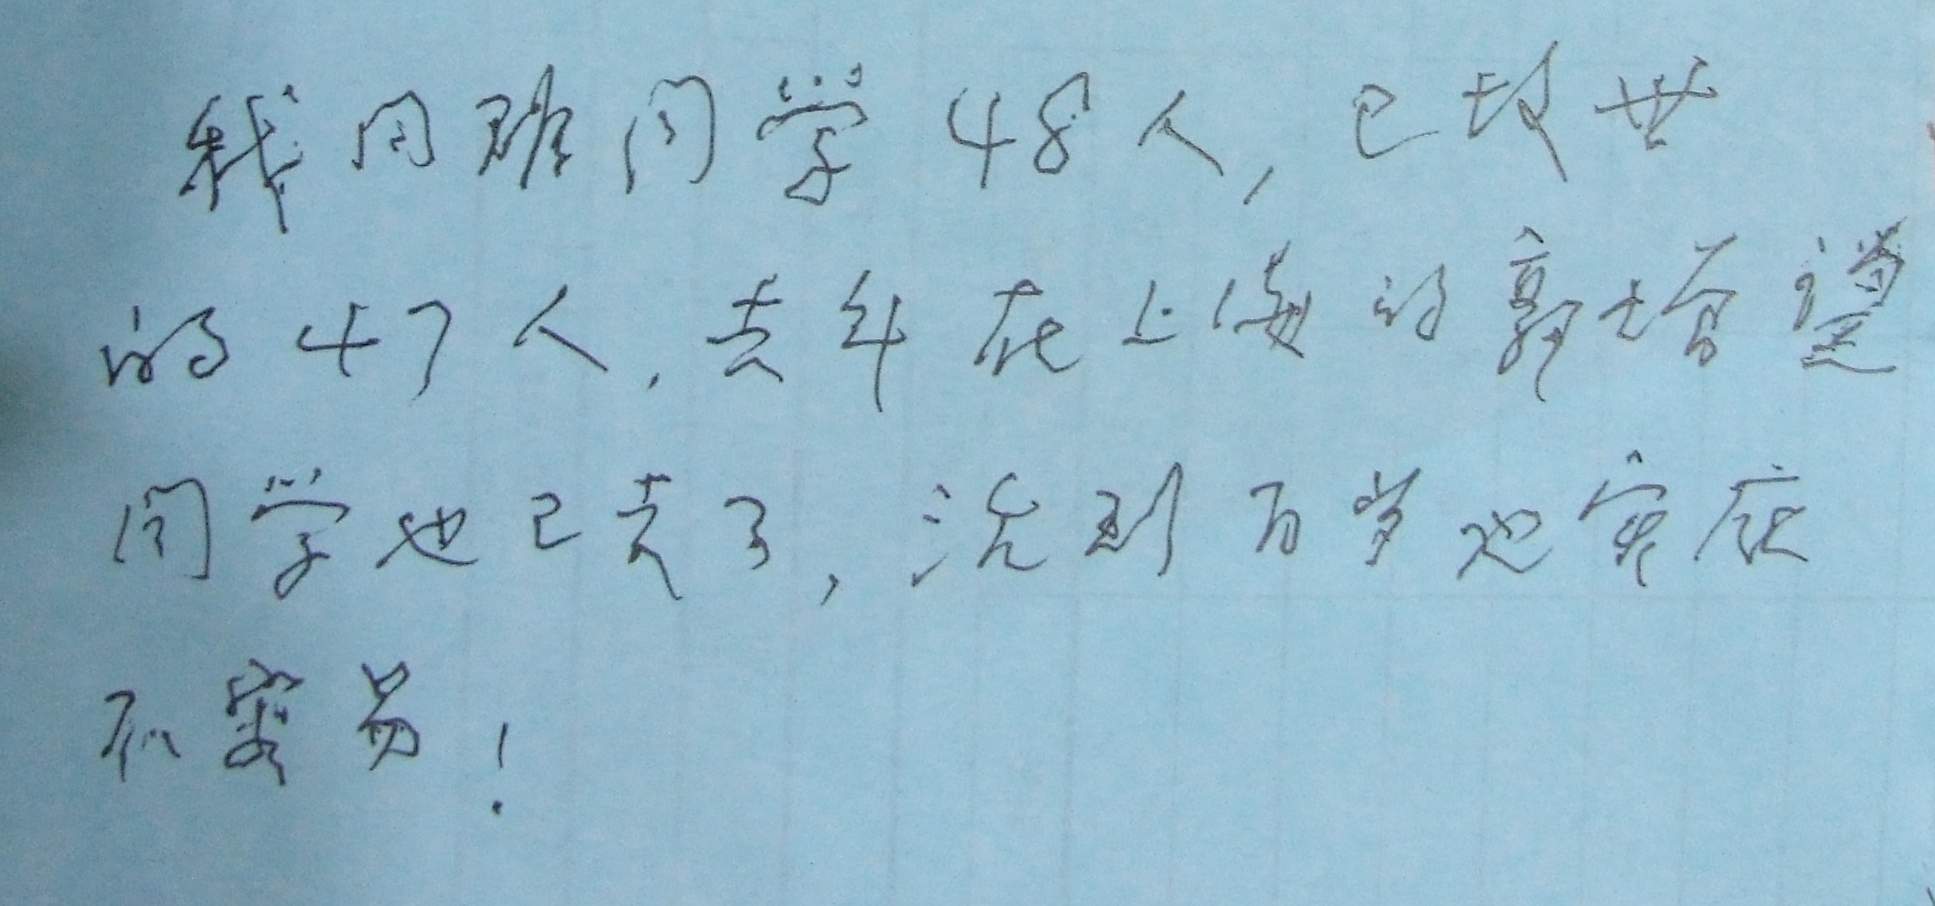 我同班同学48人,已故世
的47人,去年在上海的郭增
同学也已走了,活到百岁也实在
不容易!